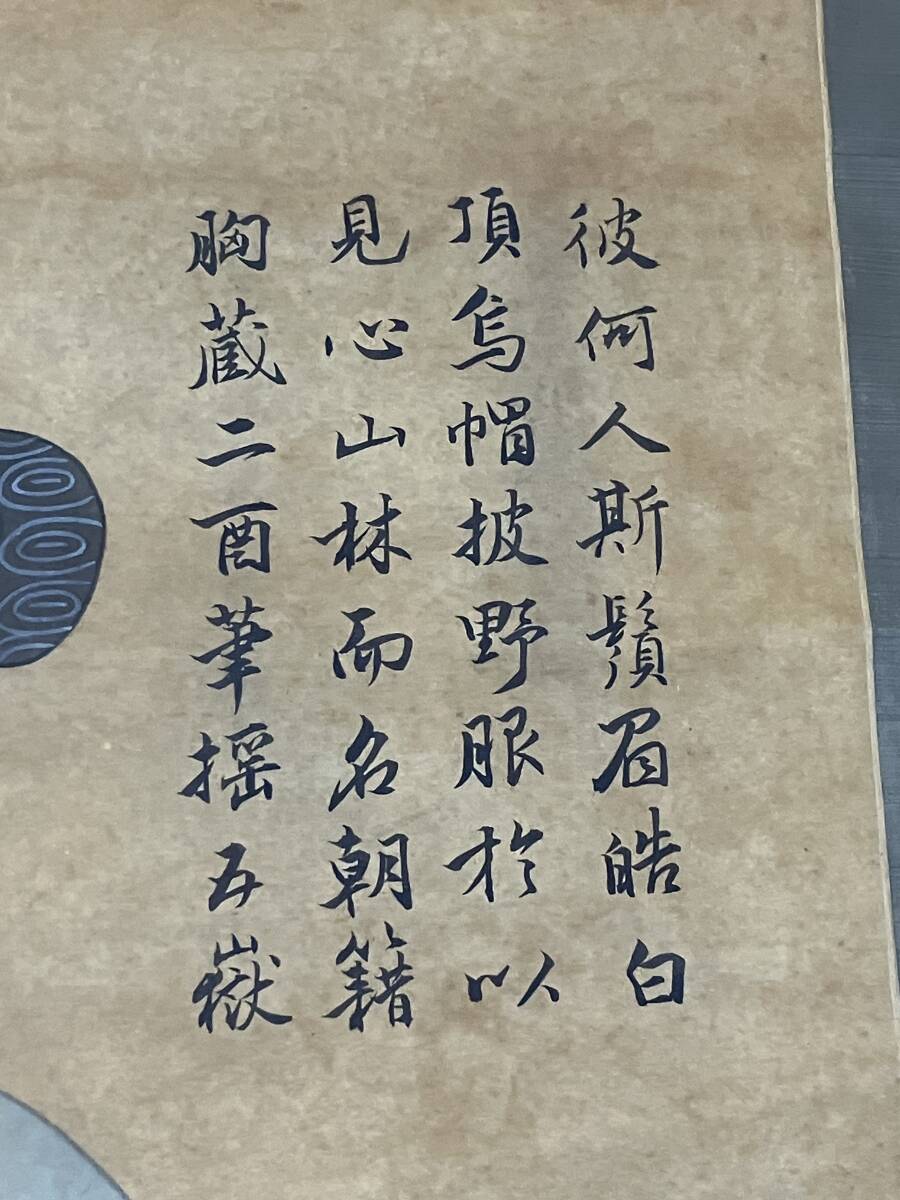 彼何人斯鬚眉皓白
頂烏帽披野服於以
見心山林而名朝籍
胸蔵二酉筆摇五嶽